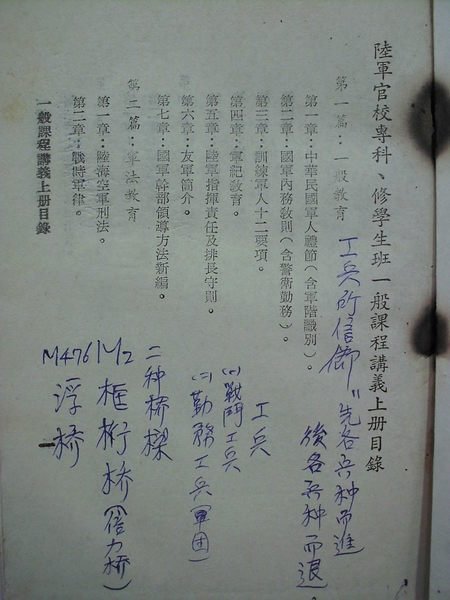 陸軍官校專科、修學生班一般課程講義上冊目錄
第一篇:一般教育
第一章:中華民國軍人禮節(含軍階識別)。
第二章:國軍內務教則(含警衛勤務)。
第三章:訓練軍人十二要項。
第四章:軍紀教育。
第五章:陸軍指揮責任及排長守則。
第六章:友軍簡介。
第七章:國軍幹部領導方法新編。
第二篇:軍法教育
第一章:陸海空軍刑法。
第二章:戰時軍律。
一般課程講義上冊目錄
一
工兵所信"先各兵种而進
後各兵种而退。
工兵
(一)戰鬥工兵
(二)勤務工兵軍团)
二种桥樑
M2框桁桥(倍力桥)
M476浮桥